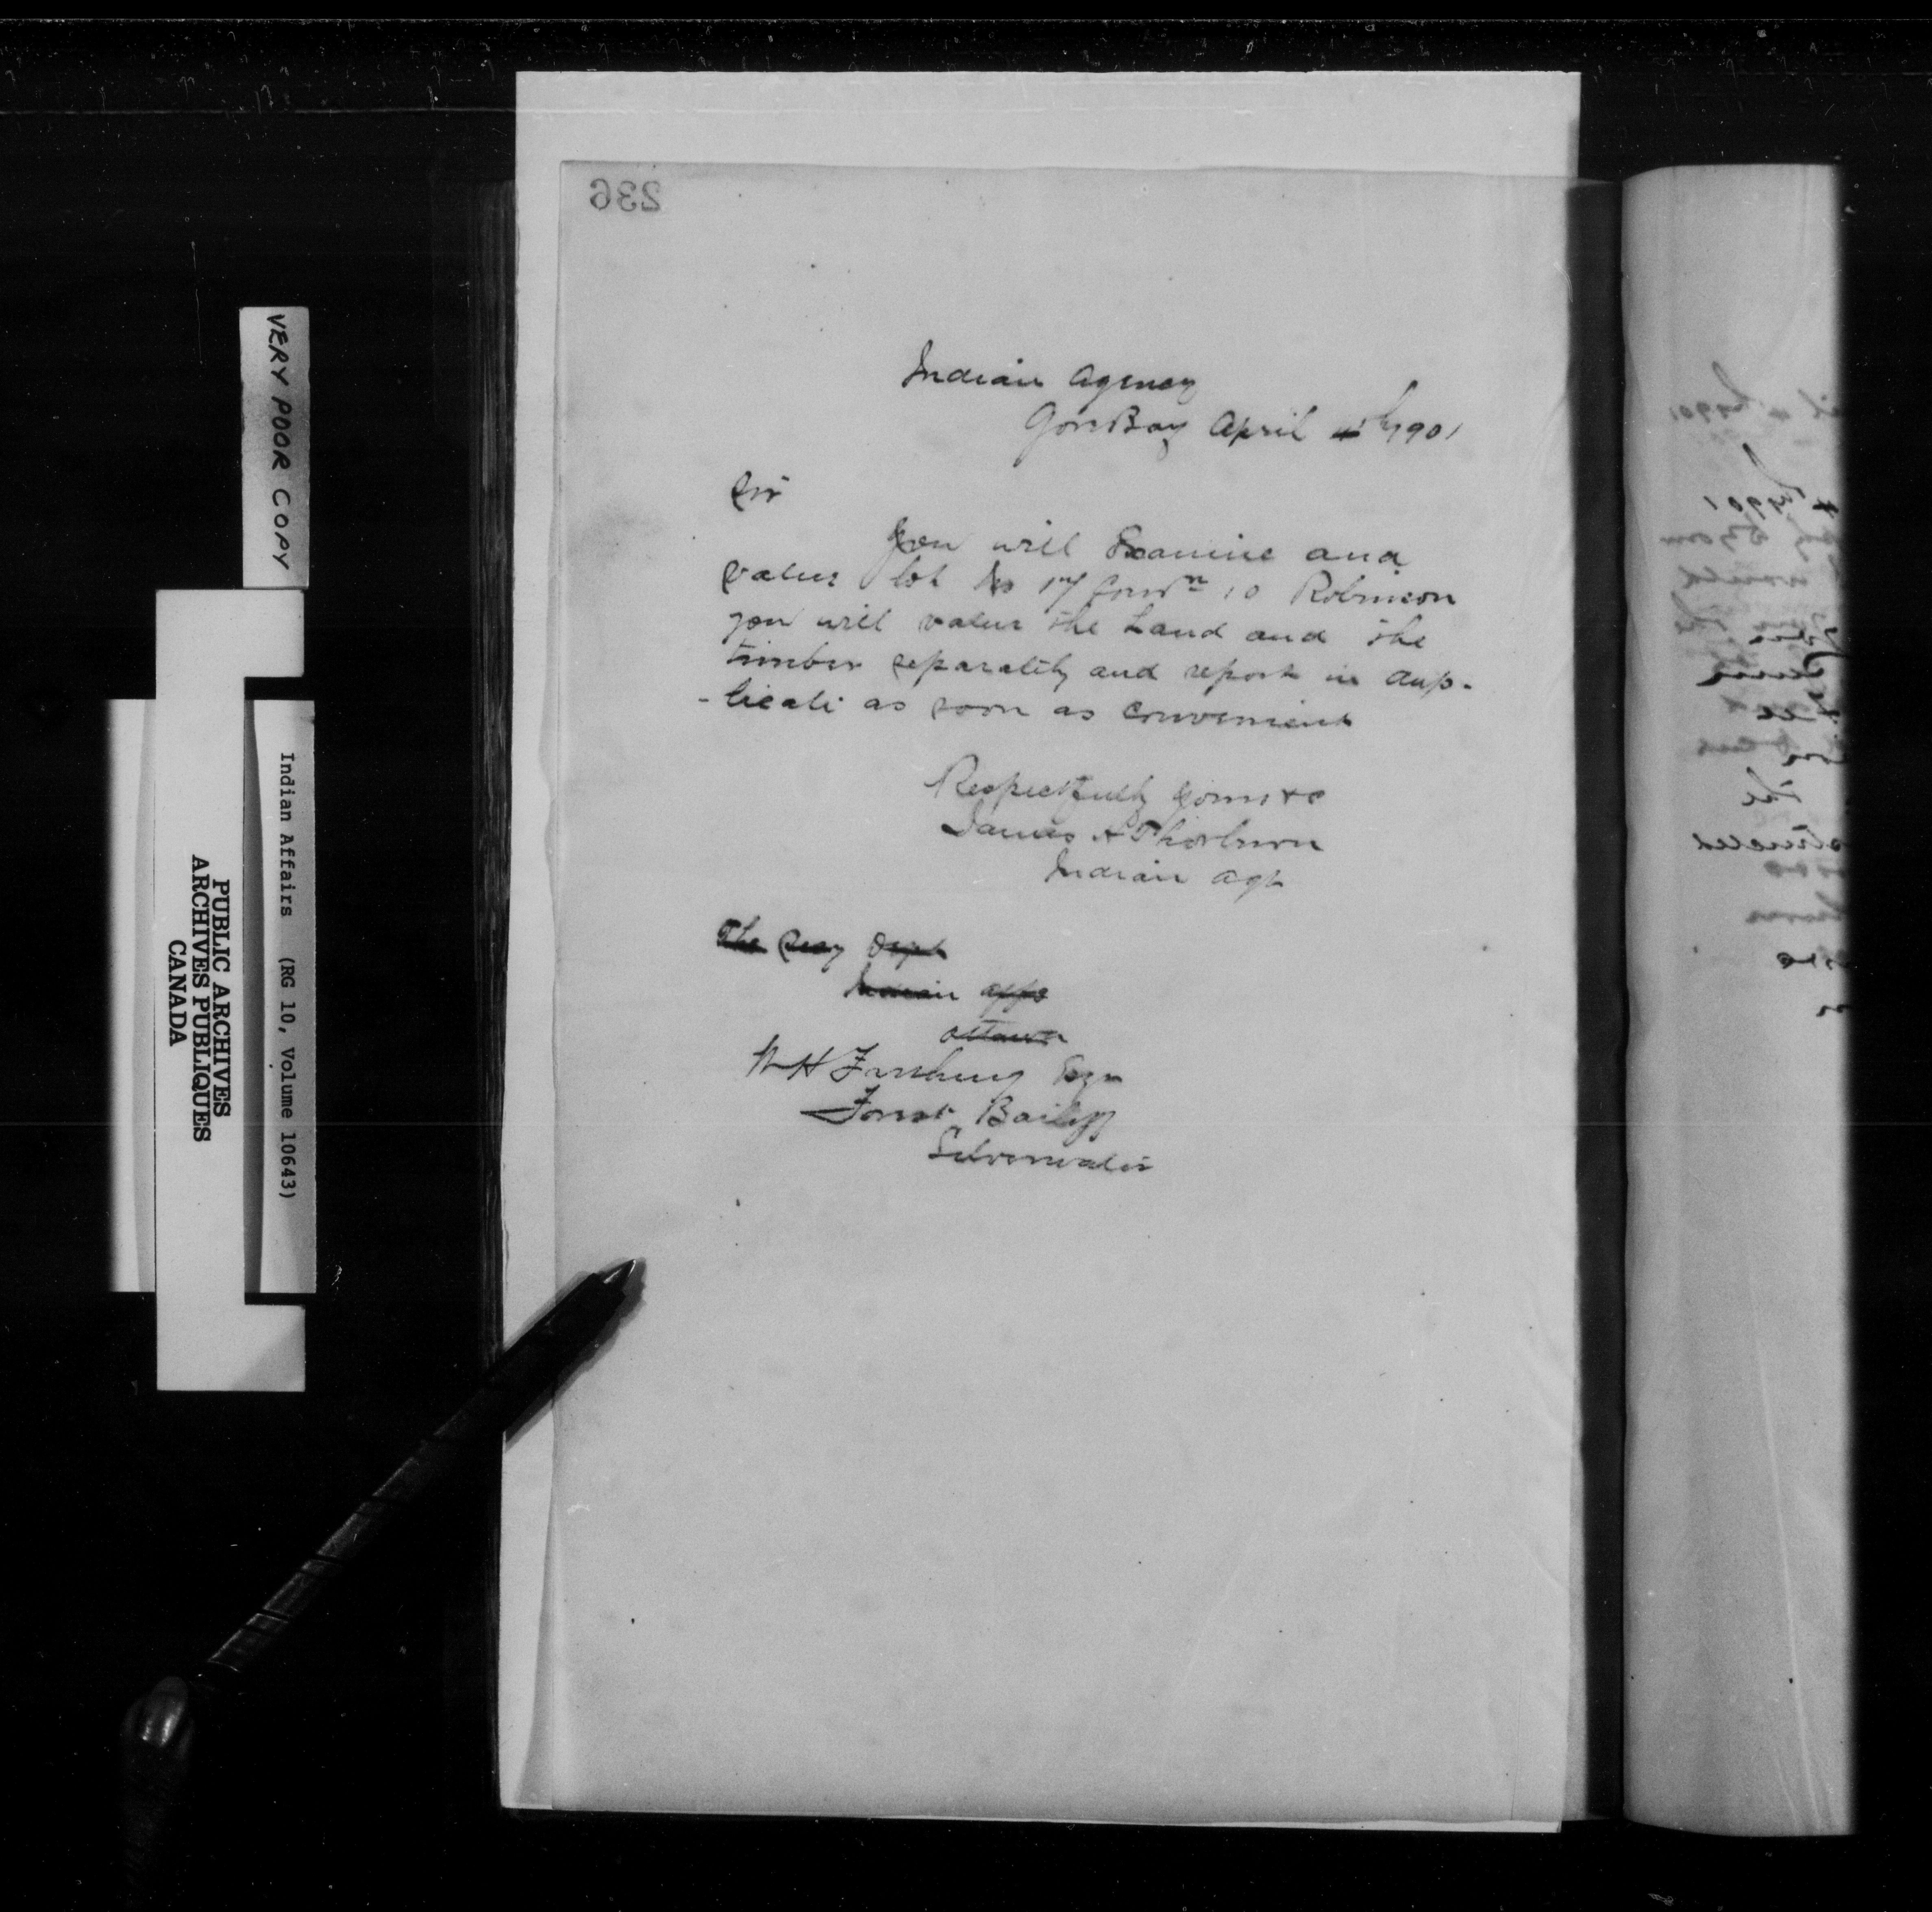 236
Indian Agency
Gore Bay April 4th 1901
Sir
You will Examine and
value lot No 17 Conn 10 Robinson
you will value the Land and the
timber separately and report in dup-
-licate as soon as convenient
Respectfully yours &c
James H Thorburn
Indian Agt
The Secy Dept
Indian Affs
Ottawa
W H Esqr
Forest Bailiff
Silverwater
VERY POOR COPY
Indian Affairs (RG 10, Volume 10643)
PUBLIC ARCHIVES
ARCHIVES PUBLIQUES
CANADA